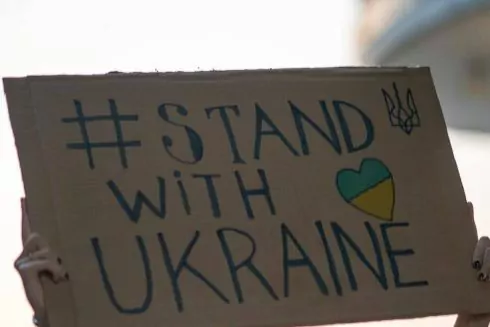 #STAND
WiTH
UKRAINE